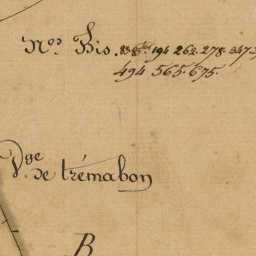 Nos Bis. 194. 262. 278. 347.
494. 565. 675.
Vge de trémabon
B